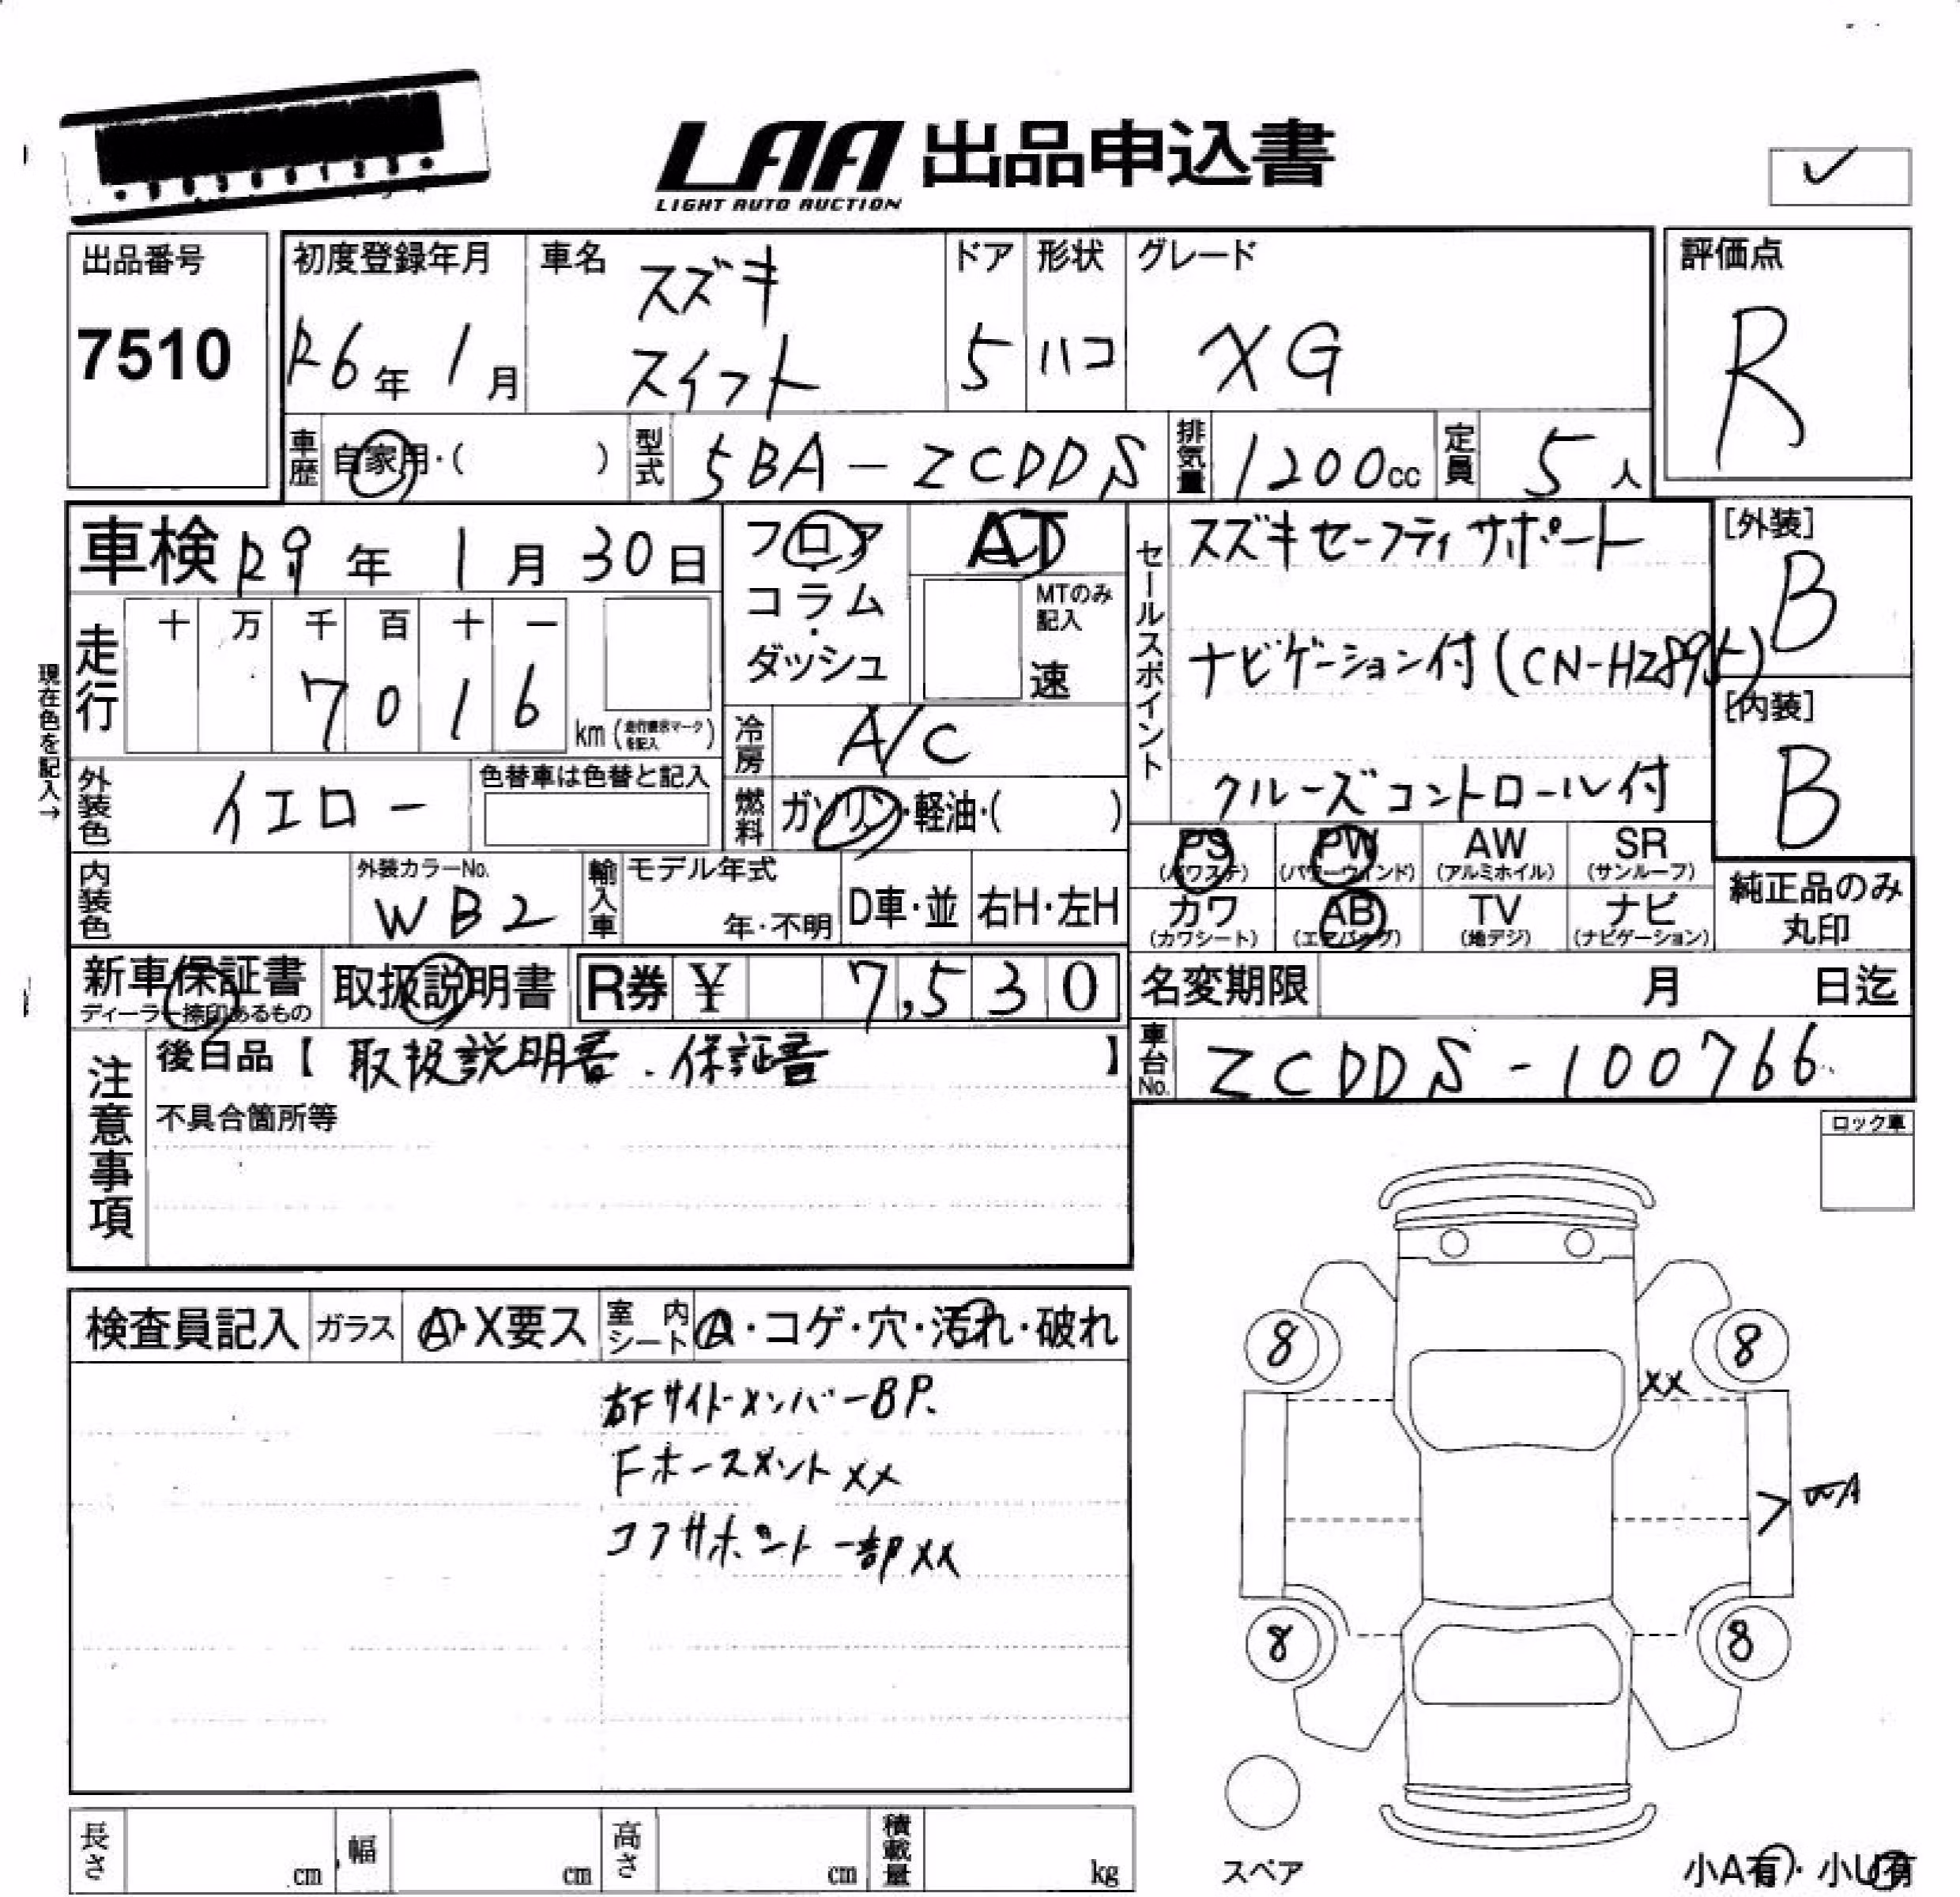 LAA 出品申込書
LIGHT AUTO AUCTION
出品番号
7510
初度登録年月
R6年 1月
車名
スズキ
スイフト
ドア
5
形状
ハコ
グレード
XG
評価点
R
車歴
自家用・( )
型式
5BA-ZCDDS
排気量
1200cc
定員
5人
車検 R9年 1月 30日
フロア
・
コラム
・
ダッシュ
AT
MTのみ
記入
速
セールスポイント
スズキセーフティサポート
ナビゲーション付(CN-HZ895)
クルーズコントロール付
[外装]
B
[内装]
B
現在色を記入→
走行
十 万 千 百 十 一
7 0 1 6
km(走行表示マークを記入)
冷房
A/C
外装色
イエロー
色替車は色替と記入
燃料
ガソリン・軽油・( )
内装色
外装カラーNo.
WB2
輸入車
モデル年式
年・不明
D車・並
右H・左H
PS
(パワステ)
PW
(パワーウインド)
AW
(アルミホイル)
SR
(サンルーフ)
カワ
(カワシート)
AB
(エアバッグ)
TV
(地デジ)
ナビ
(ナビゲーション)
純正品のみ
丸印
新車保証書
ディーラー捺印あるもの
取扱説明書
R券 ¥ 7,530
名変期限 月 日迄
注意事項
後日品【 取扱説明書.保証書 】
不具合箇所等
車台No.
ZCDDS-100766
ロック車
検査員記入
ガラス
A・X要ス
室内シート
A・コゲ・穴・汚れ・破れ
右FサイドメンバーBP.
Fホースメント XX
コアサポート一部XX
8
8
XX
8
8
スペア
小A有・小U有
長さ
cm
幅
cm
高さ
cm
積載量
kg